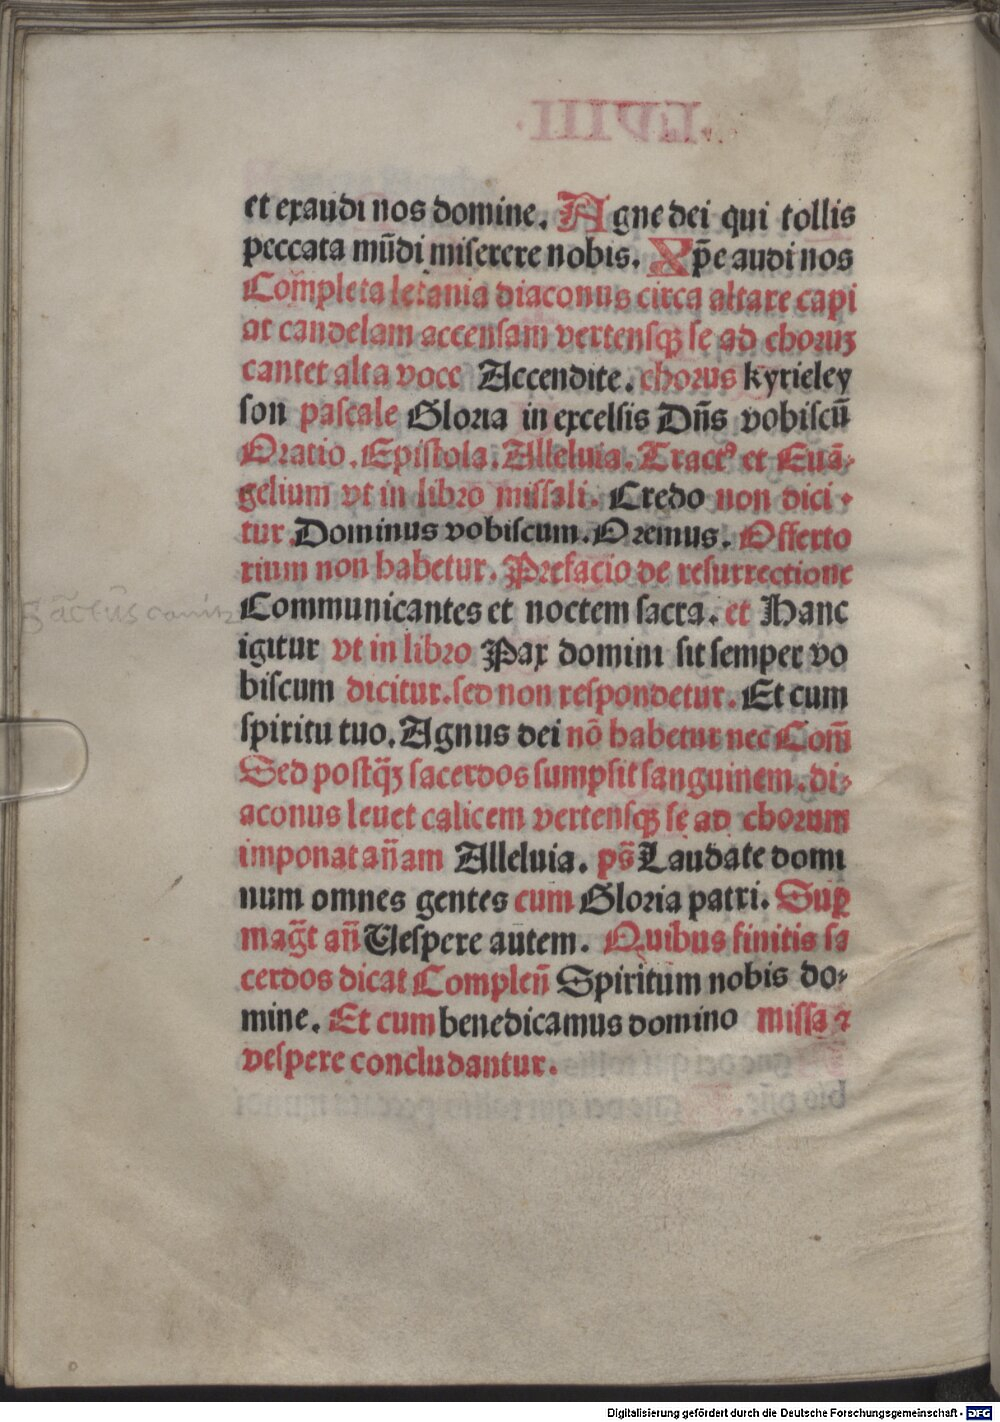 et exaudi nos domine. Agne dei qui tollis
peccata mūdi miserere nobis. Xp̄e audi nos
Completa letania diaconus circa altare capi
at candelam accensam vertensqꝫ se ad choruꝫ
cantet alta voce Accendite. chorus kyrieley
son pascale Gloria in excelsis Dn̄s vobiscū
Oratio. Epistola. Alleluia. Tractꝰ et Euā-
gelium vt in libro missali. Credo non dici-
tur. Dominus vobiscum. Oremus. Offerto
rium non habetur. Prefacio de resurrectione
Communicantes et noctem sacra. et Hanc
igitur vt in libro Pax domini sit semper vo
biscum dicitur. sed non respondetur. Et cum
spiritu tuo. Agnus dei nō habetur nec Com̄
Sed postq̄ꝫ sacerdos sumpsit sanguinem. di-
aconus leuet calicem vertensqꝫ se ad chorum
imponat an̄am Alleluia. ps̄ Laudate domi
num omnes gentes cum Gloria patri. Suꝑ
mag̅t an̄ Uespere autem. Quibus finitis sa
cerdos dicat Complen̄ Spiritum nobis do-
mine. Et cum benedicamus domino missa ⁊
vespere concludantur.
Digitalisierung gefördert durch die Deutsche Forschungsgemeinschaft - DFG